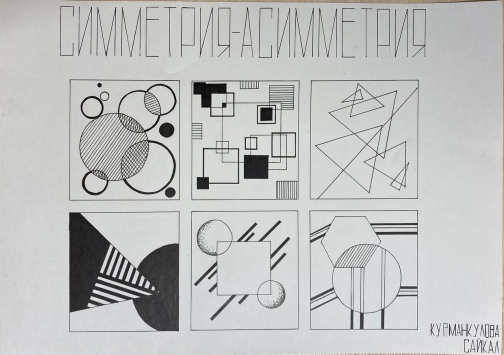 СИММЕТРИЯ-АСИММЕТРИЯ
КУРМАНКУЛОВА
САЙКАЛ